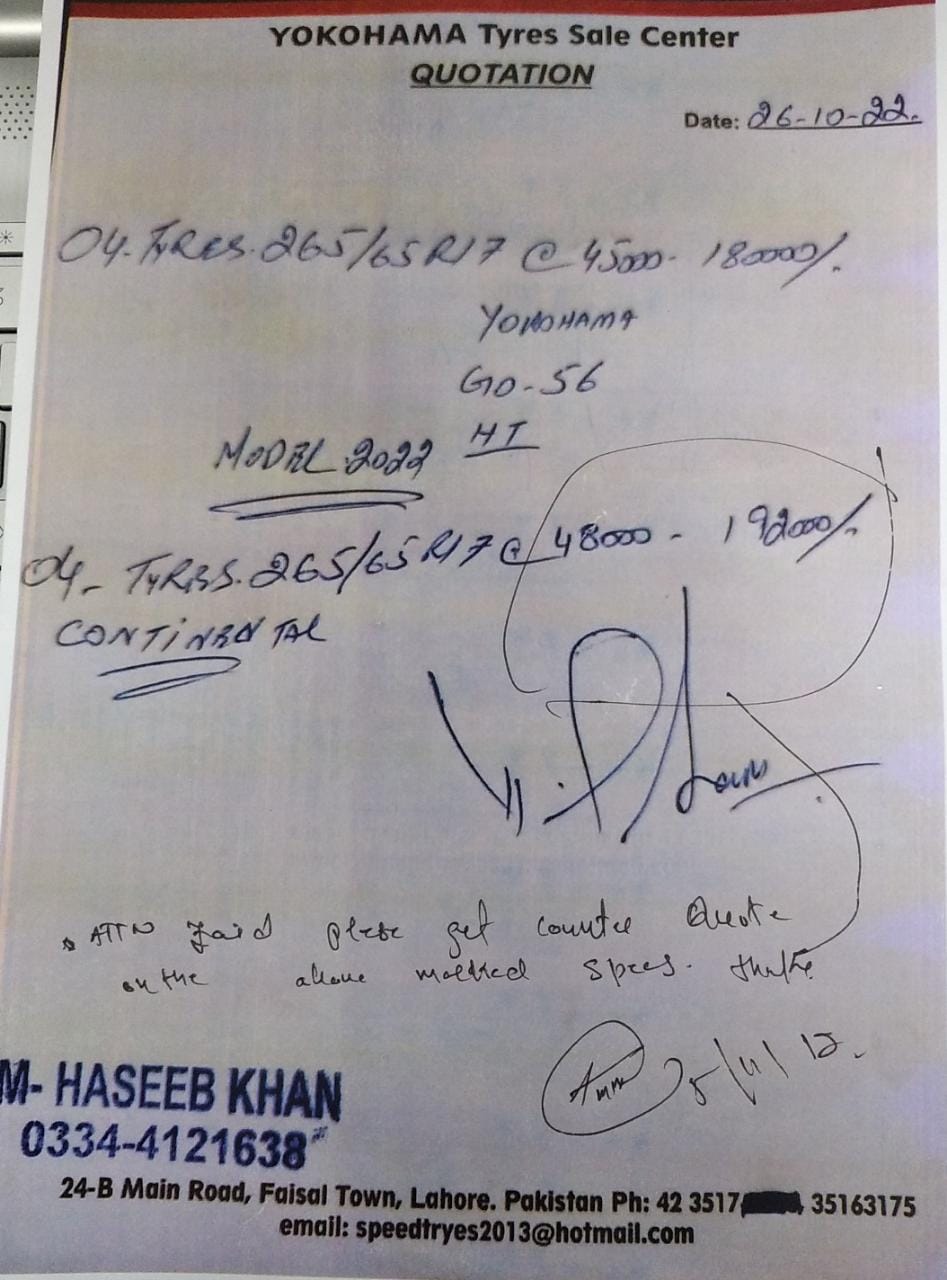 YOKOHAMA Tyres Sale Center
QUOTATION
Date: 26-10-22.
04. TYRES. 265/65 R17 @ 45000 - 180000/.
YOKOHAMA
GO-56
HT
MODEL 2022
04 - TYRES. 265/65 R17 @ 48000 - 192000/.
CONTINENTAL
ATTN Zaid please get counter Quote
on the above specs.
M- HASEEB KHAN
0334-4121638
24-B Main Road, Faisal Town, Lahore. Pakistan Ph: 42 3517 35163175
email: speedtryes2013@hotmail.com